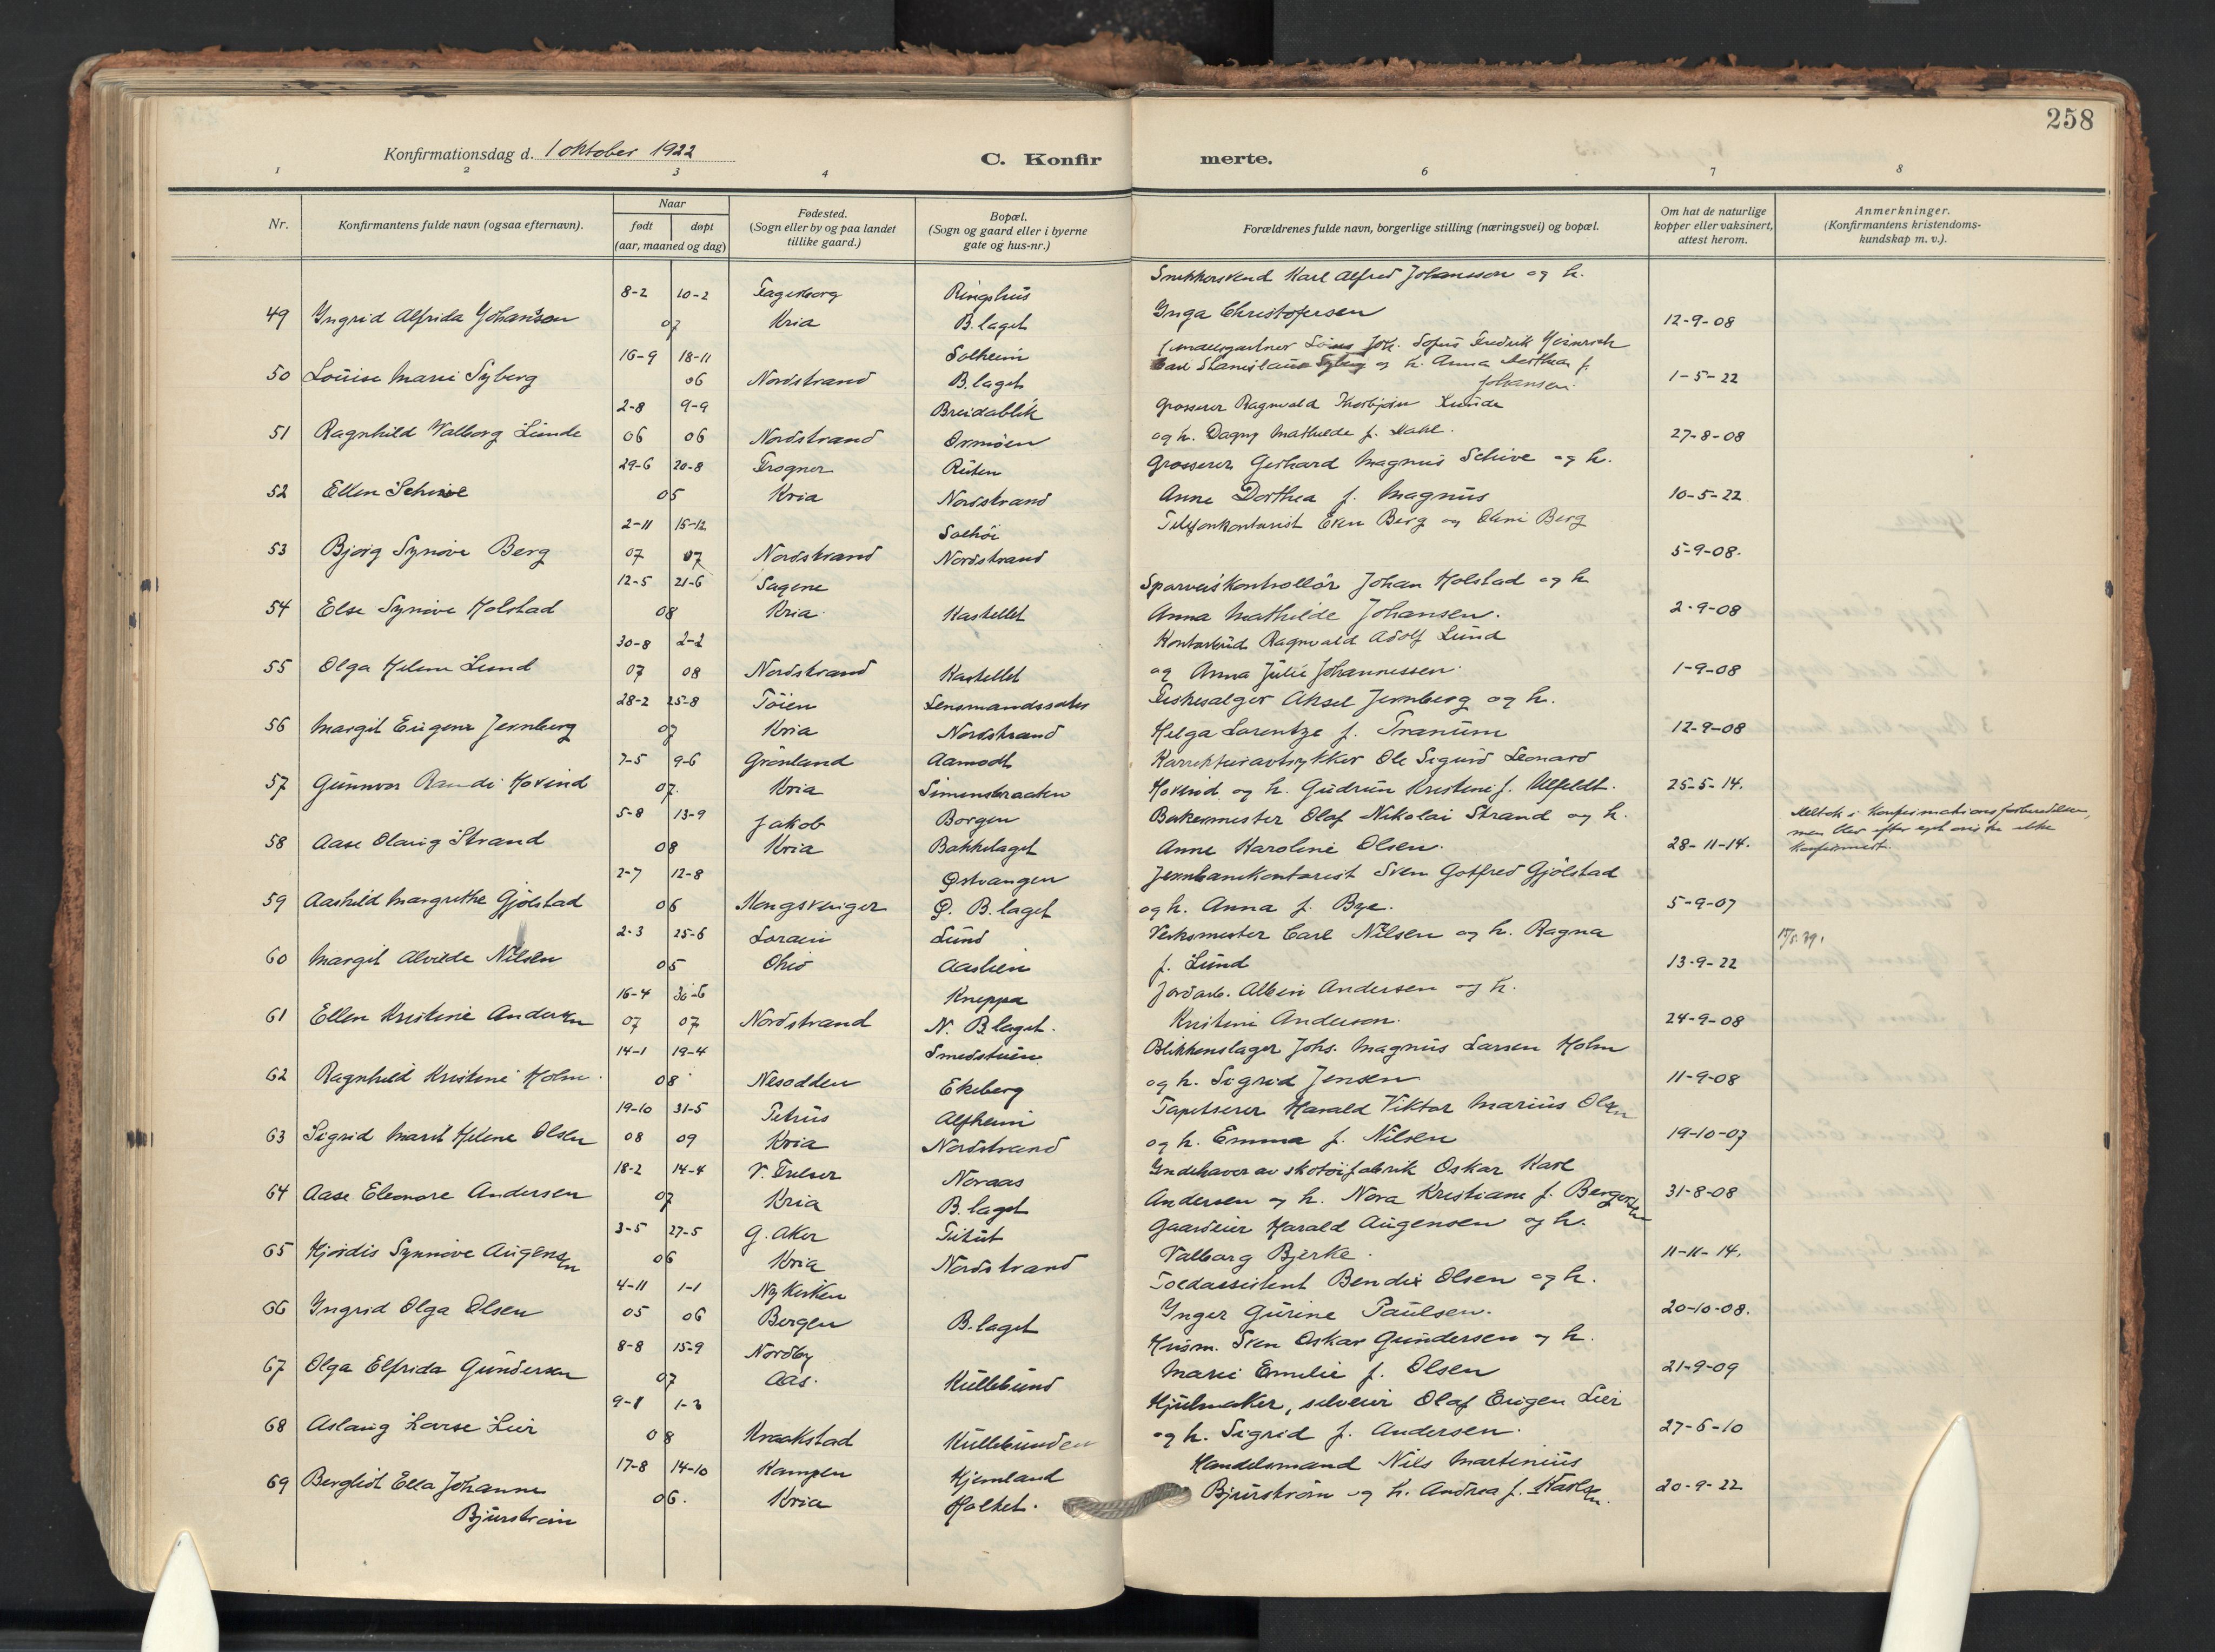 258
Konfirmationsdag d. 1 oktober 1922
C. Konfir merte.
1 2 3 4 6 7 8
Nr.
Konfirmantens fulde navn (ogsaa efternavn).
Naar
født døpt
(aar, maaned og dag)
Fødested.
(Sogn eller by og paa landet
tillike gaard.)
Bopæl.
(Sogn og gaard eller i byerne
gate og hus-nr.)
Forældrenes fulde navn, borgerlige stilling (næringsvei) og bopæl.
Om hat de naturlige
kopper eller vaksinert,
attest herom.
Anmerkninger.
(Konfirmantens kristendoms-
kundskap m. v.).
8-2 10-2 Fagerborg Ringshus Snekkersvend Karl Alfred Johansson og h.
49 Ingrid Alfrida Johanson 07 Kria B.laget Inga Christofersen 12-9-08
16-9 18-11 Solheim Joh. Sofus Fredrik Heinrich
50 Louise Marie Syberg 06 Nordstrand B.laget Carl Stanislaus Syberg og h. Anna Dorthea f. Johansen. 1-5-22
2-8 9-9 Breidablik Grosserer Ragnvald Thorbjørn Lunde
51 Ragnhild Valborg Lunde 06 06 Nordstrand Ormøen og h. Dagny Mathilde f. Dahl. 27-8-08
29-6 20-8 Frogner Ruten Grosserer Gerhard Magnus Schive og h.
52 Ellen Schive 05 Kria Nordstrand Anne Dorthea f. Magnus 10-5-22
2-11 15-12 Solhøi Telefonkontorist Even Berg og Berg
53 Bjørg Synøve Berg 07 07 Nordstrand Nordstrand 5-9-08.
12-5 21-6 Sagene Sporveiskontrollør Johan Holstad og h
54 Else Synøve Holstad 08 Kria. Kastellet Anna Mathilde Johansen. 2-9-08
30-8 2-2 Kontorbud Ragnvald Adolf Lund
55 Olga Helene Lund 07 08 Nordstrand Kastellet og Anna Julie Johannessen. 1-9-08
28-2 25-8 Tøien Lensmandssæter Fiskesælger Aksel Jernberg og h.
56 Margit Eugene Jernberg 07 Kria Nordstrand Helga Lorentze f. Tranum 12-9-08
7-5 9-6 Grønland Aamodt Korrekturavtrykker Ole Sigurd Leonard
57 Gunnvor Randi Hovind 07. Kria Simensbraaten Hovind og h. Gudrun Kristine f. Ulfeldt. 25-5-14.
5-8 13-9 Jakob Borgen Bakermester Olaf Nikolai Strand og h. Deltok i konfirmationsforberedelsen,
58 Aase Olaug Strand 08 Kria Bækkelaget Anne Karoline Olsen. 28-11-14. men blev efter eget ønske ikke
konfirmert.
2-7 12-8 Østvangen Jernbanekontorist Sven Gotfred Gjølstad
59 Aashild Margrethe Gjølstad 06 Kongsvinger Ø. B.laget og h. Anna f. Bye. 5-9-07
2-3 25-6 Lorain Lund Verksmester Carl Nilsen og h. Ragna
60 Margit Alvilde Nilsen 05 Ohio Aaslien f. Lund 13-9-22
16-4 30-6 Kneppa Jordarb. Albin Andersen og h.
61 Ellen Kristine Andersen 07 07 Nordstrand N. B.laget. Kristine Anderson. 24-9-08
14-1 19-4 Smedstuen Blikkenslager Johs. Magnus Larsen Holm
62 Ragnhild Kristine Holm. 08 Nesodden Ekeberg og h. Sigrid Jensen 11-9-08
19-10 31-5 Petrus Alfheim Tapetserer Harald Viktor Marius Olsen
63 Sigrid Marit Helene Olsen 08 09 Kria Nordstrand og h. Emma f. Nilsen 19-10-07
18-2 14-4 V. Frelser Noraas Indehaver av skotøifabrik Oskar Karl
64 Aase Eleonore Andersen 07 Kria B.laget Andersen og h. Nora Kristiane f. Bergersen 31-8-08
3-5 27-5 G. Aker Titut Gaardeier Harald Augensen og h.
65 Hjørdis Synnøve Augensen 06 Kria Nordstrand Valborg Bjerke. 11-11-14.
4-11 1-1 Nykirken Toldassistent Bendix Olsen og h.
66 Ingrid Olga Olsen 05 06 Bergen B.laget Inger Gurine Paulsen. 20-10-08.
8-8 15-9 Nordby Husm. Sven Oskar Gundersen og h.
67 Olga Elfrida Gundersen 07 Aas. Kullebund Marie Emilie f. Olsen 21-9-09
9-1 1-3 Hjulmaker, selveier Olaf Eugen Lier
68 Aslaug Lovise Lier 08 Kraakstad Kullebunden og h. Sigrid f. Andersen. 27-6-10
17-8 14-10 Kampen Hjemland Handelsmand Nils Martinius
69 Bergliot Ella Johanne 06. Kria Holtet. Bjurstrøm og h. Andrea f. Karlsen. 20-9-22
Bjurstrøm